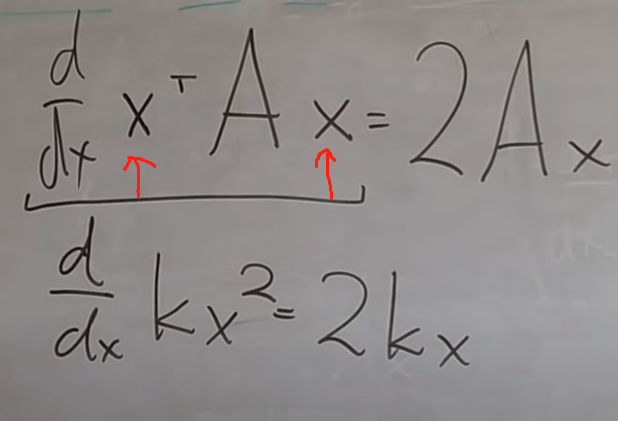 d/dx xᵀ A x = 2Ax
d/dx kx² = 2kx